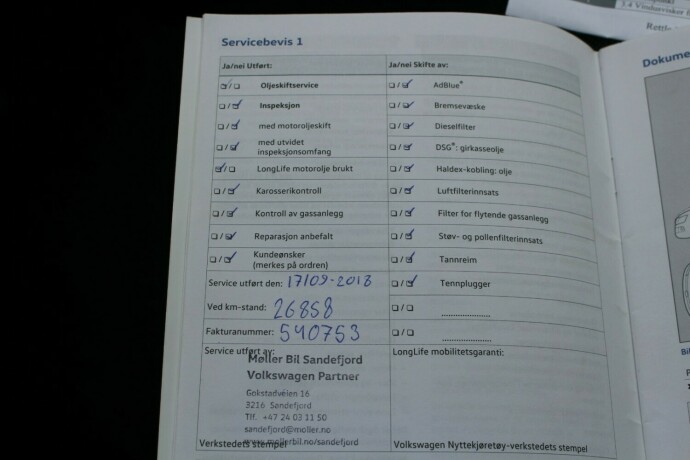 3.4 Vindusvisker
Servicebevis 1
Dokume
Ja/nei Utført:
Ja/nei Skifte av:
Oljeskiftservice
AdBlue®
Inspeksjon
Bremsevæske
med motoroljeskift
Dieselfilter
med utvidet
inspeksjonsomfang
DSG®: girkasseolje
LongLife motorolje brukt
Haldex-kobling: olje
Karosserikontroll
Luftfilterinnsats
Kontroll av gassanlegg
Filter for flytende gassanlegg
Reparasjon anbefalt
Støv- og pollenfilterinnsats
Kundeønsker
(merkes på ordren)
Tannreim
Service utført den: 17/09-2018
Tennplugger
Ved km-stand: 26858
Fakturanummer: 540753
Service utført av:
LongLife mobilitetsgaranti:
Møller Bil Sandefjord
Volkswagen Partner
Gokstadveien 16
3216 Sandefjord
Tlf. +47 24 03 11 50
sandefjord@moller.no
www.mollerbil.no/sandefjord
Verkstedets stempel
Volkswagen Nyttekjøretøy-verkstedets stempel